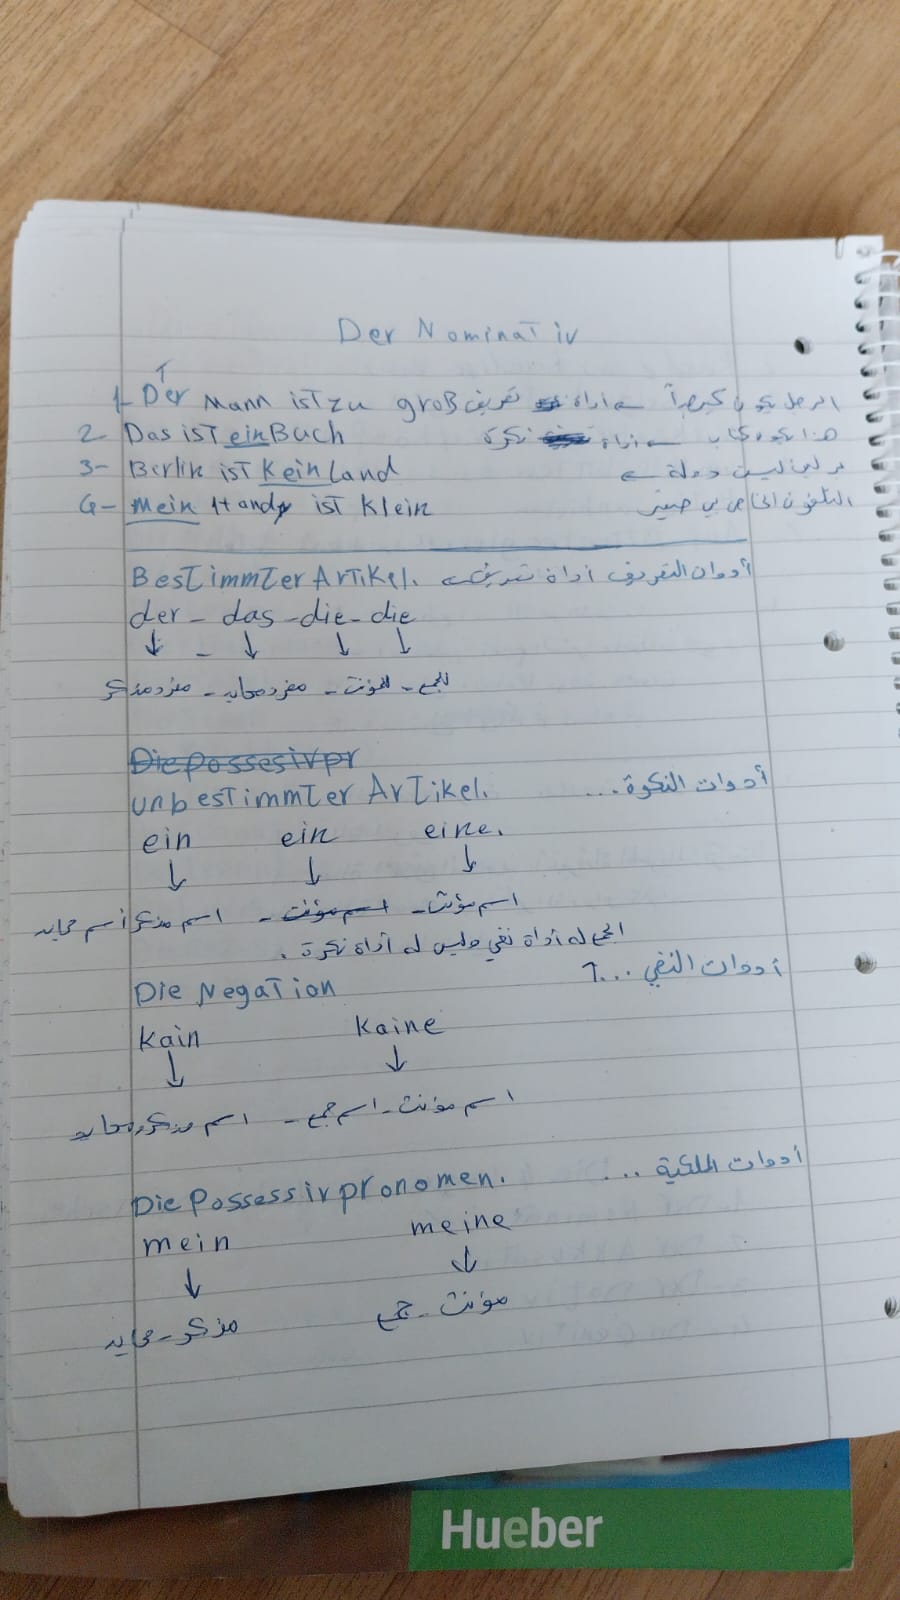 Der Nominativ
1- Der Mann ist zu groß الرجل يكون كبيراً ← أداة تعريف
2- Das ist ein Buch هذا يكون كتاب ← أداة نكرة
3- Berlin ist Kein Land برلين ليست دولة ←
4- Mein Handy ist Klein التلفون الخاص بي صغير
Bestimmter Artikel. أدوات التعريف أداة تعريف ←
der - das - die - die
↓ - ↓ ↓ ↓
مفرد مذكر - مفرد محايد - للمؤنث - للجمع
Die possesivpr
unbestimmter Artikel. أدوات النكرة ...
ein ein eine.
↓ ↓ ↓
أسم محايد اسم مذكر - اسم مؤنث - اسم مؤنث
الجمع له أداة نفي وليس له أداة نكرة .
Die Negation أدوات النفي ...
Kain Kaine
↓ ↓
اسم مذكر ومحايد - اسم مؤنث - اسم جمع
Die Possessivpronomen. أدوات الملكية ...
mein meine
↓ ↓
مذكر - محايد مؤنث - جمع
Hueber